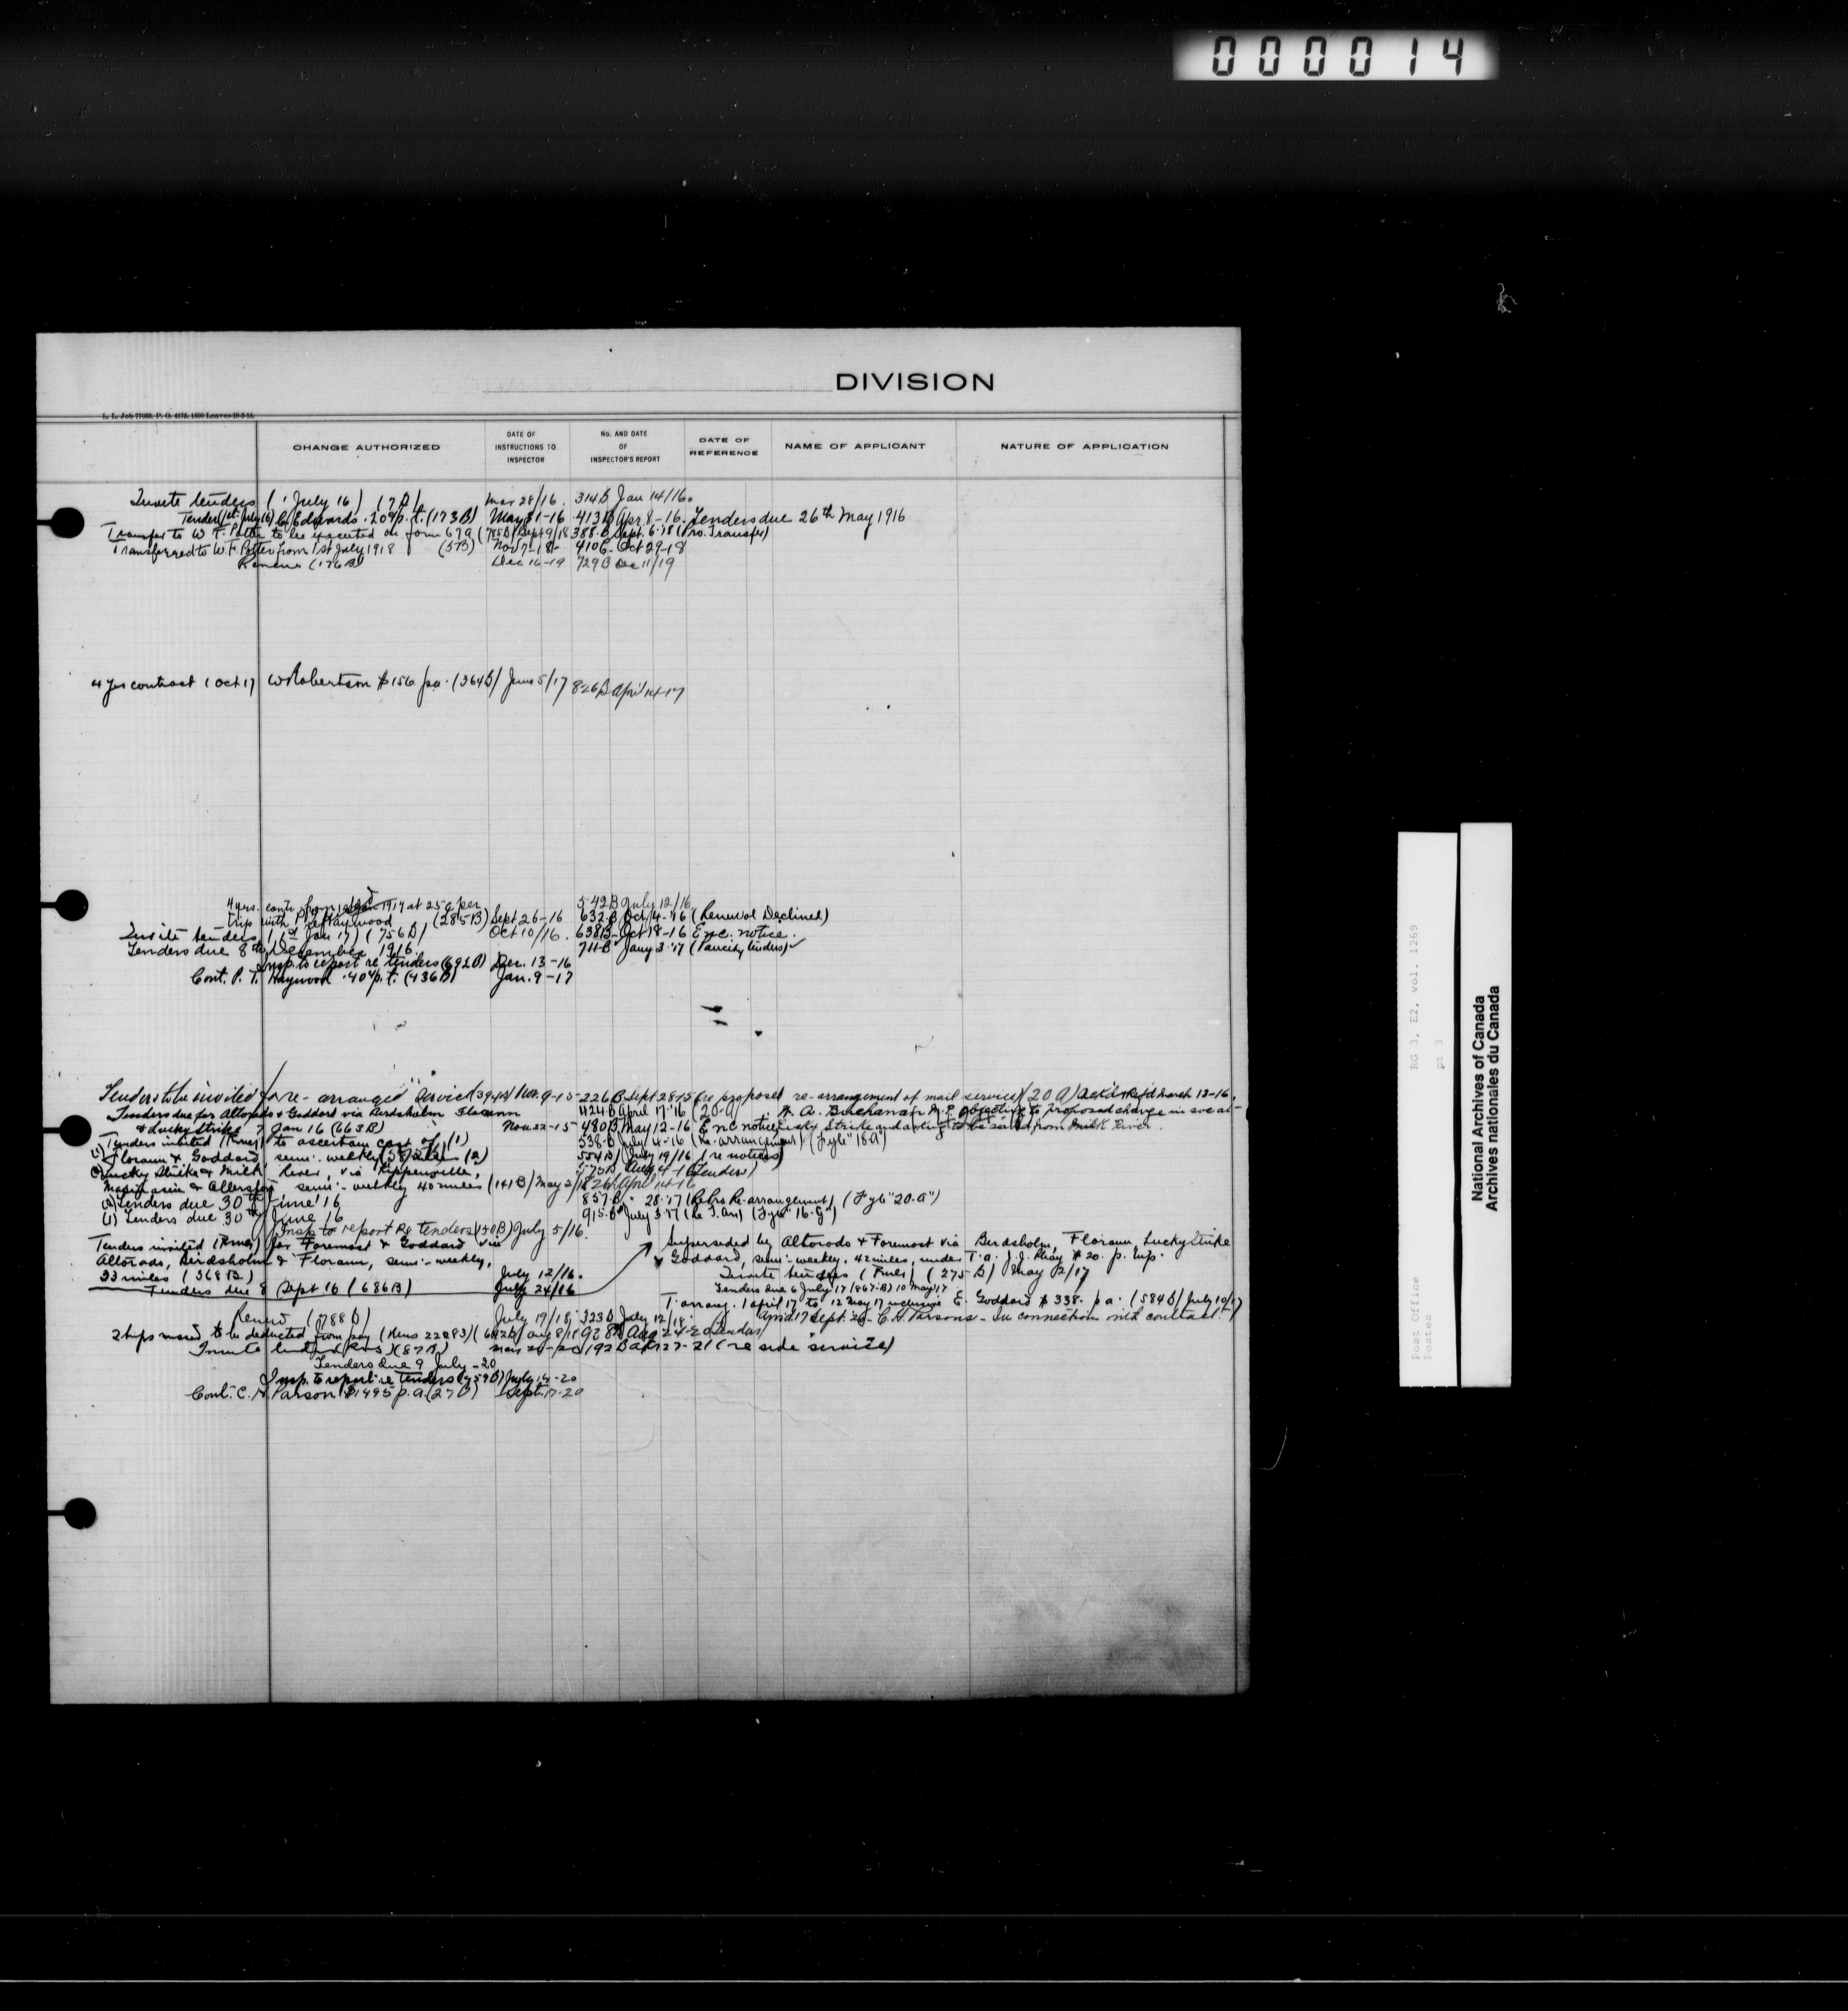 000014
DIVISION
L. L. Job 77033. P. O. 4175. 1500 Leaves
CHANGE AUTHORIZED
DATE OF INSTRUCTIONS TO INSPECTOR
No. AND DATE OF INSPECTOR'S REPORT
DATE OF REFERENCE
NAME OF APPLICANT
NATURE OF APPLICATION
Invite tenders (1 July 16) (7B) Mar 28/16. 314B Jan 14/16.
Tender (1st July 16) C. Edwards .20 p.t. (173B) May 31-16 413B Apr 8-16. Tenders due 26th May 1916
Transfer to W. F. Potter to be executed on form 67a (785B) Sept 9/18 388.B Sept. 6-18 (Pro. Transfer)
Transferred to W. F. Potter from 1st July 1918 (5B) Nov 7-18- 410B Oct 29-18
Renew (176B) Dec 16-19 729B Dec 11/19
4 yrs contract 1 Oct 17 W Robertson $156 pa. (364B) June 5/17 826B April 14-17
4 yrs. cont. from 1914 at 25¢ per 542B July 12/16
trip with P. T. Haywood (285B) Sept 26-16 632.B Oct 4-16 (Renewal Declined)
Invite tenders 1st Jan 17) (756B) Oct 10/16. 638B Oct 18-16 Enc. notice.
Tenders due 8th December 1916. 711B Jany 3-17 (Paucity tenders)
Insp. to report re tenders (692B) Dec. 13-16
Cont. P. T. Haywood .40 p.t. (436B) Jan. 9-17
Tenders to be invited for re-arranged service (394B) Nov. 9-15-226B Sept 28-15 (re proposed re-arrangement of mail service) (20A) Ack'd & Ref'd March 13-16.
Tenders due for Altorado & Goddard via Birdsholm Florann 424B April 17-16 (20-A) W. A. Buchanan M.P. objecting to proposed change in svce at-
& Lucky Strike 7 Jan 16 (663B) Nov 22-15-480B May 12-16 Enc notice Lucky Strike and asking to be served from Milk River.
Tenders invited (Rmes) to ascertain cost of (1) 538-B July 4-16 (Re-arrangement) (Fyle "18-A")
Florann & Goddard semi-weekly (2) 554B July 19/16 (re notices)
Lucky Strike & Milk River, via Kippenville, 575B Aug 4-16 (Tenders)
Masinasin & Allerston semi-weekly 40 miles (141B) May 2/16 826B April 14-16
(2) Tenders due 30th June 16 857.B " 28-17 (Re Pro Re-arrangement) (Fyle "20-A")
(1) Tenders due 30th June 16 915.B July 3-17 (Re T.Arr) (Fyle "16-G")
Insp to report Re tenders (150B) July 5/16.
Tenders invited (Rmes) for Foremost & Goddard via Superseded by Altorado & Foremost via Birdsholm, Florann, Lucky Strike
Altorado, Birdsholm & Florann, semi-weekly, & Goddard, semi-weekly, 42 miles, under T.a. J. J. $20. p. trip.
33 miles (368B) July 12/16. Invite tenders (Rmes) (275B) May 2/17
Tenders due 8 Sept 16 (686B) July 24/16 Tenders due 6 July 17 (867-B) 10 May 17
T. arrang. 1 April 17 to 12 May 17 inclusive E. Goddard $338. p a. (584B) July 10/17
Renew (788B) July 19/18 323B July 12/18. April 17 Sept. 20 - C. H. Parsons - In connection with contract.
2 trips missed to be deducted from pay (Mens 22083) (612B) Aug 8/18 938B Aug 24-20 (Tenders)
Invite tenders Rms) (87B) 192B Apr 27-21 (re side service)
Tenders due 9 July -20
Insp. to report re tenders (459B) July 14-20
Cont. C. H. Parson $1495 p.a. (27B) Sept. 17-20
Post Office RG 3, E2, vol. 1269
Postes pt 3
National Archives of Canada
Archives nationales du Canada